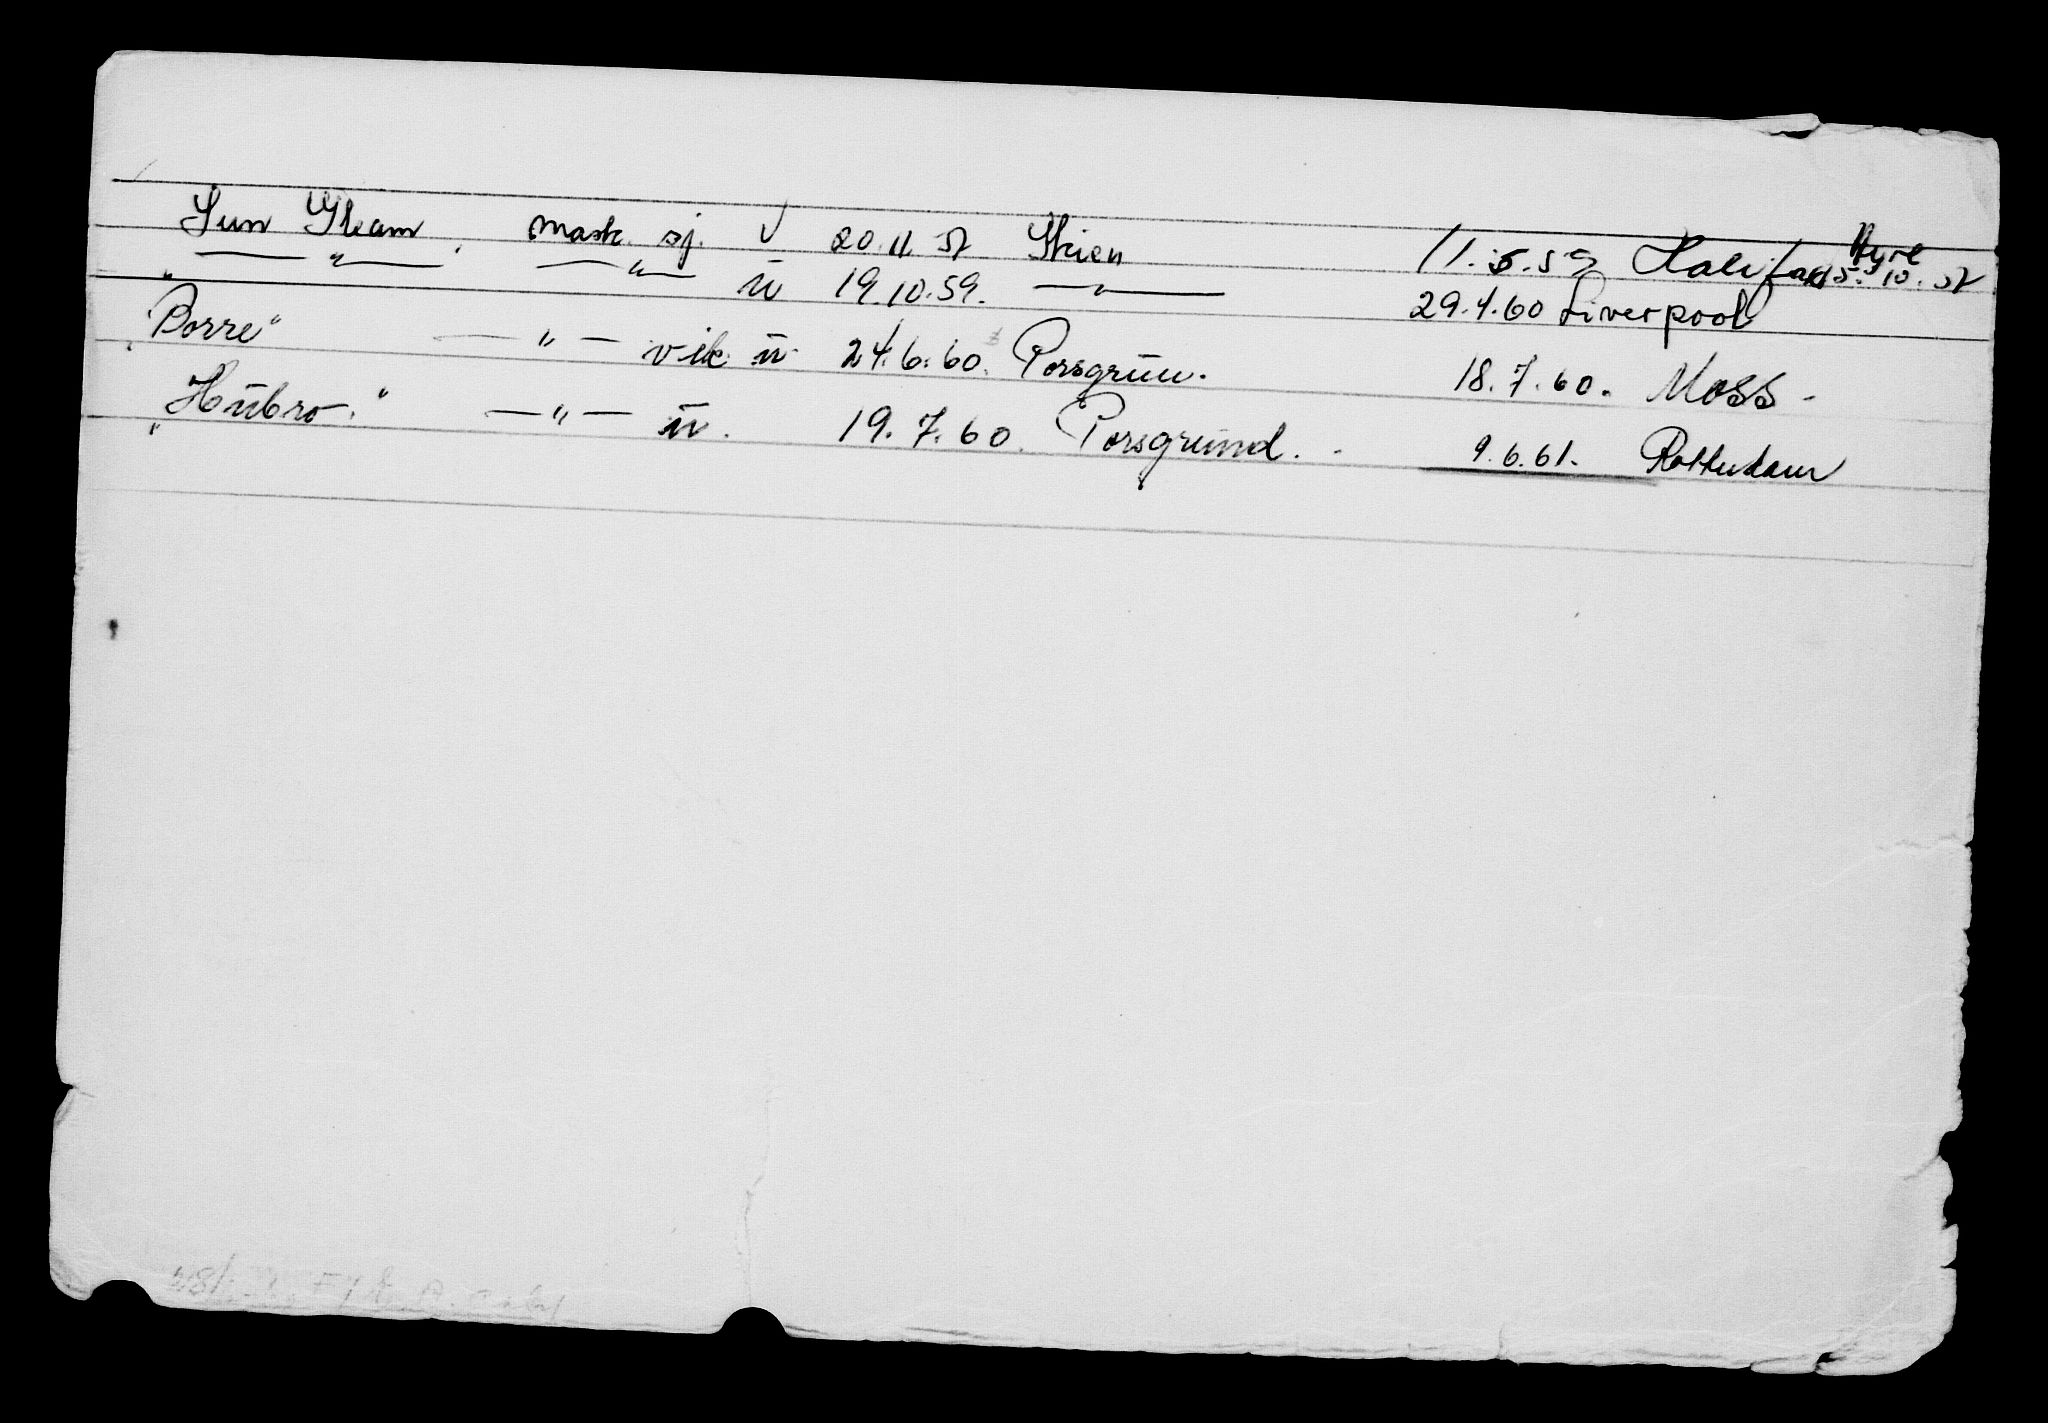 Sun Gleam. mask. sj. 20.11.57 Skien 11.5.59 Halifax Hyre 15.10.57
— " — — " — ü 19.10.59. — " — 29.4.60 Liverpool
"Borre" — " — vik. ü 24.6.60. Porsgrun. 18.7.60. Moss -
"Hübro." — " — ü. 19.7.60. Porsgründ. 9.6.61. Rotterdam